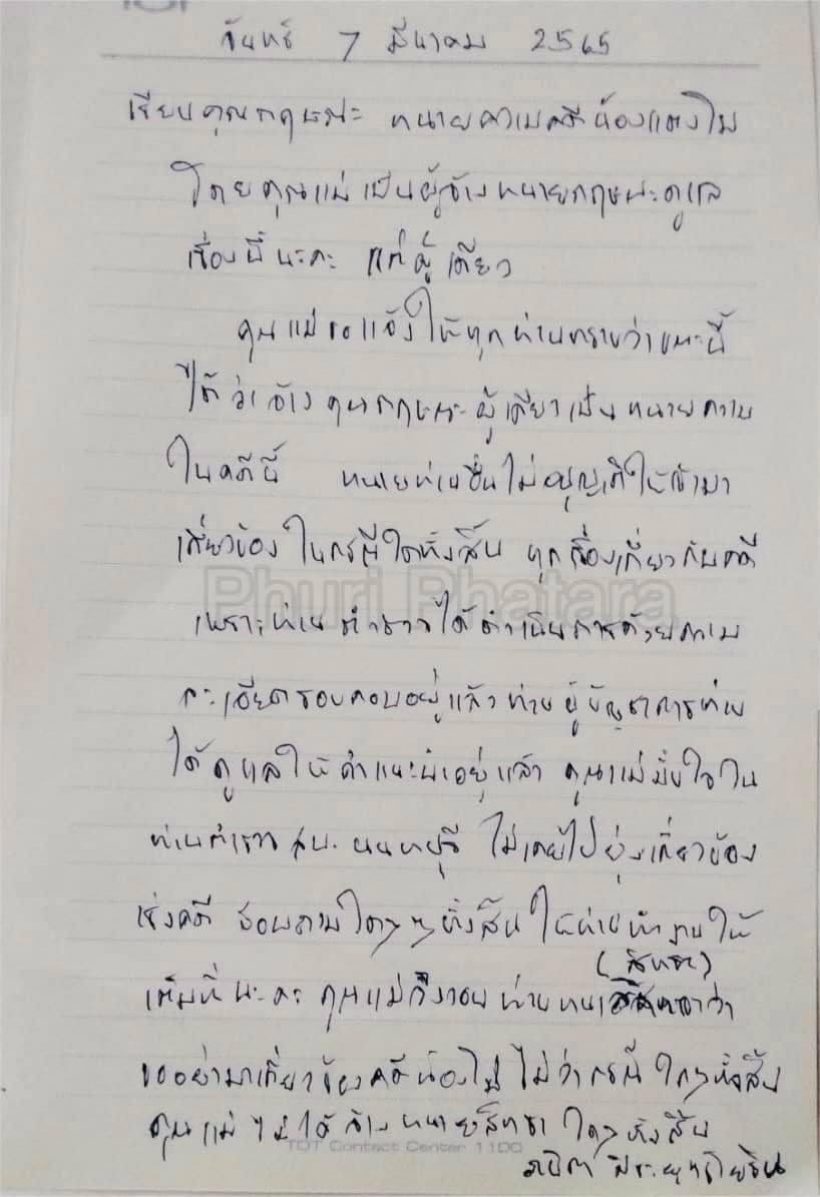 จันทร์ 7 มีนาคม 2565
เรียนคุณกฤษณะ ทนายความคดีน้องแตงโม
โดยคุณแม่เป็นผู้จ้างทนายกฤษณะดูแล
เรื่องนี้นะคะ แต่ผู้เดียว
คุณแม่ขอแจ้งให้ทุกท่านทราบว่าขณะนี้
ได้ว่าจ้างคุณกฤษณะผู้เดียวเป็นทนายความ
ในคดีนี้ ทนายท่านอื่นไม่อนุญาติให้เข้ามา
เกี่ยวข้องในกรณีใดทั้งสิ้น ทุกเรื่องเกี่ยวกับคดี
Phuri Phatara
เพราะท่านตำรวจได้ดำเนินการด้วยความ
ละเอียดรอบคอบอยู่แล้วท่านผู้บัญชาการท่าน
ได้ดูแลให้คำแนะนำอยู่แล้ว คุณแม่มั่นใจใน
ท่านตำรวจ สภ. นนทบุรี ไม่เคยไปยุ่งเกี่ยวข้อง
เรื่องคดี สอบถามใดๆทั้งสิ้น ให้ท่านทำงานให้
(สิทธา)
เต็มที่นะคะ คุณแม่จึงขอบท่านทนาย ว่า
ขออย่ามาเกี่ยวข้องคดีน้องโม ไม่ว่ากรณีใดๆทั้งสิ้น
คุณแม่ไม่ได้จ้างทนายสิทธา ใดๆทั้งสิ้น
TOT Contact Center 1100
ภนิดา ศิระยุทธโยธิน